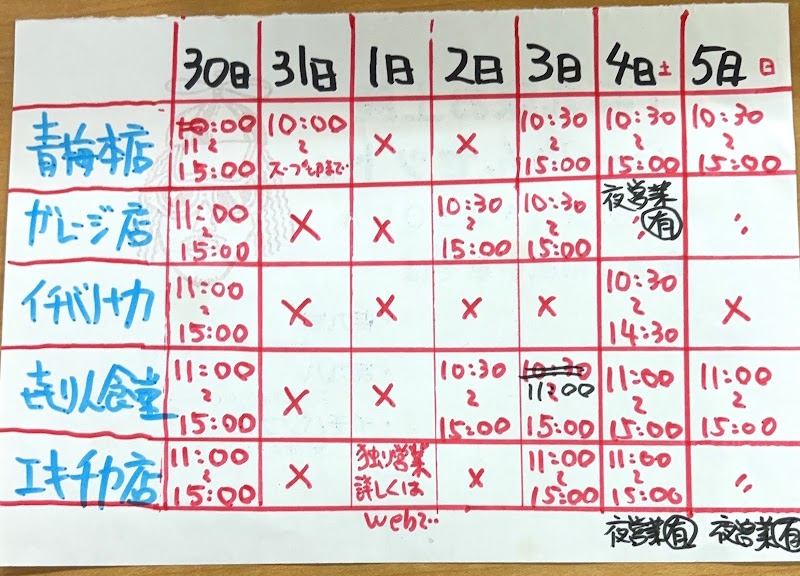 30日 31日 1日 2日 3日 4日土 5日日
青梅本店
10:00
11 〜
15:00
10:00
〜
スープ切れまで
×
×
10:30
〜
15:00
10:30
〜
15:00
10:30
〜
15:00
ガレージ店
11:00
〜
15:00
×
×
10:30
〜
15:00
10:30
〜
15:00
夜営業
有
〃
〃
イチバンナカ
11:00
〜
15:00
×
×
×
×
10:30
〜
14:30
×
きりん食堂
11:00
〜
15:00
×
×
10:30
〜
15:00
10:30
11:00
〜
15:00
11:00
〜
15:00
11:00
〜
15:00
エキチカ店
11:00
〜
15:00
×
独り営業
詳しくは
webで‥
×
11:00
〜
15:00
11:00
〜
15:00
〃
夜営業有 夜営業有